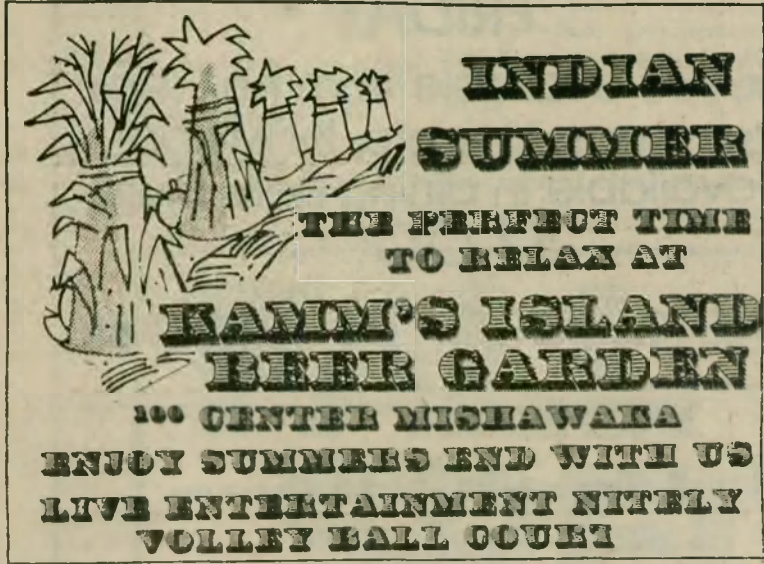 INDIAN
SUMMER
THE PERFECT TIME
TO RELAX AT
KAMM'S ISLAND
BEER GARDEN
100 CENTER MISHAWAKA
ENJOY SUMMERS END WITH US
LIVE ENTERTAINMENT NITELY
VOLLEY BALL COURT